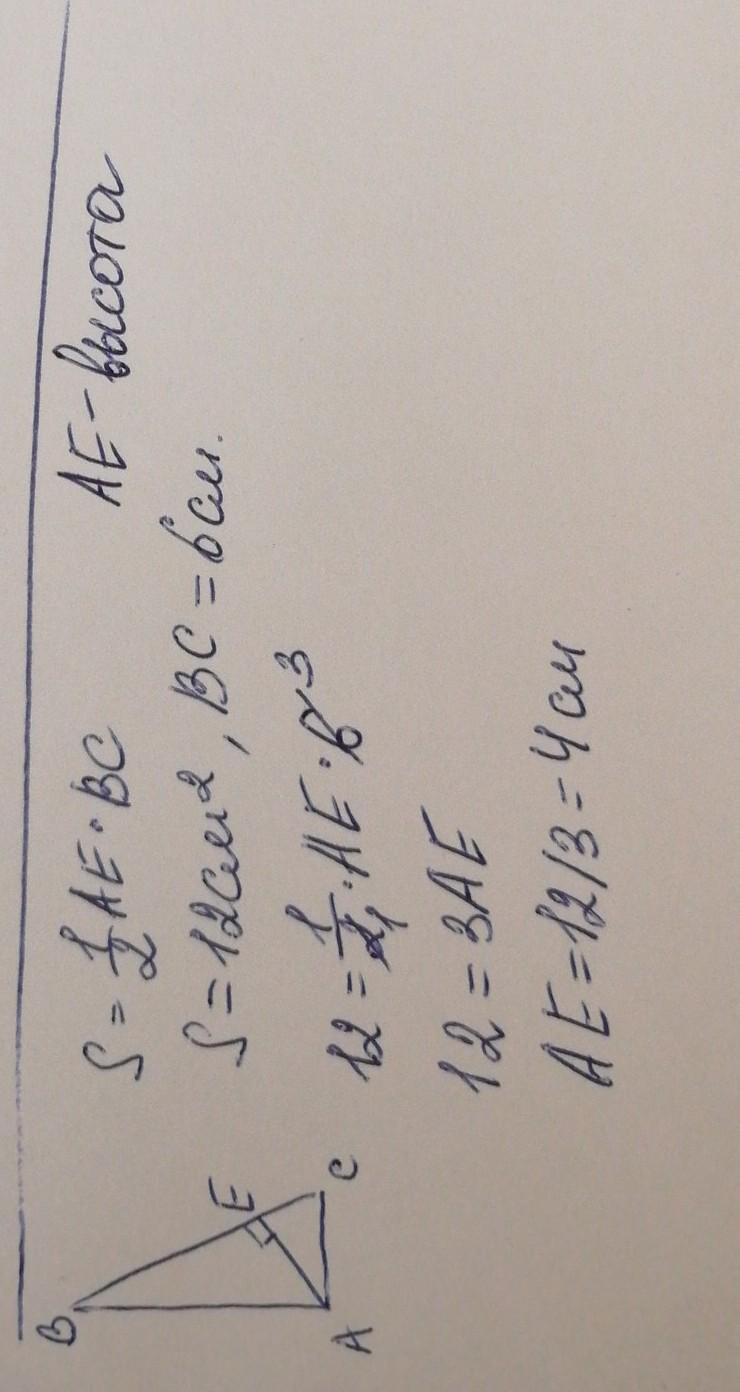 S = 1/2 AE · BC AE - высота
S = 12 см², BC = 6 см.
12 = 1/2 1 · AE · 6 3
12 = 3AE
AE = 12/3 = 4 см
B
E
A
C